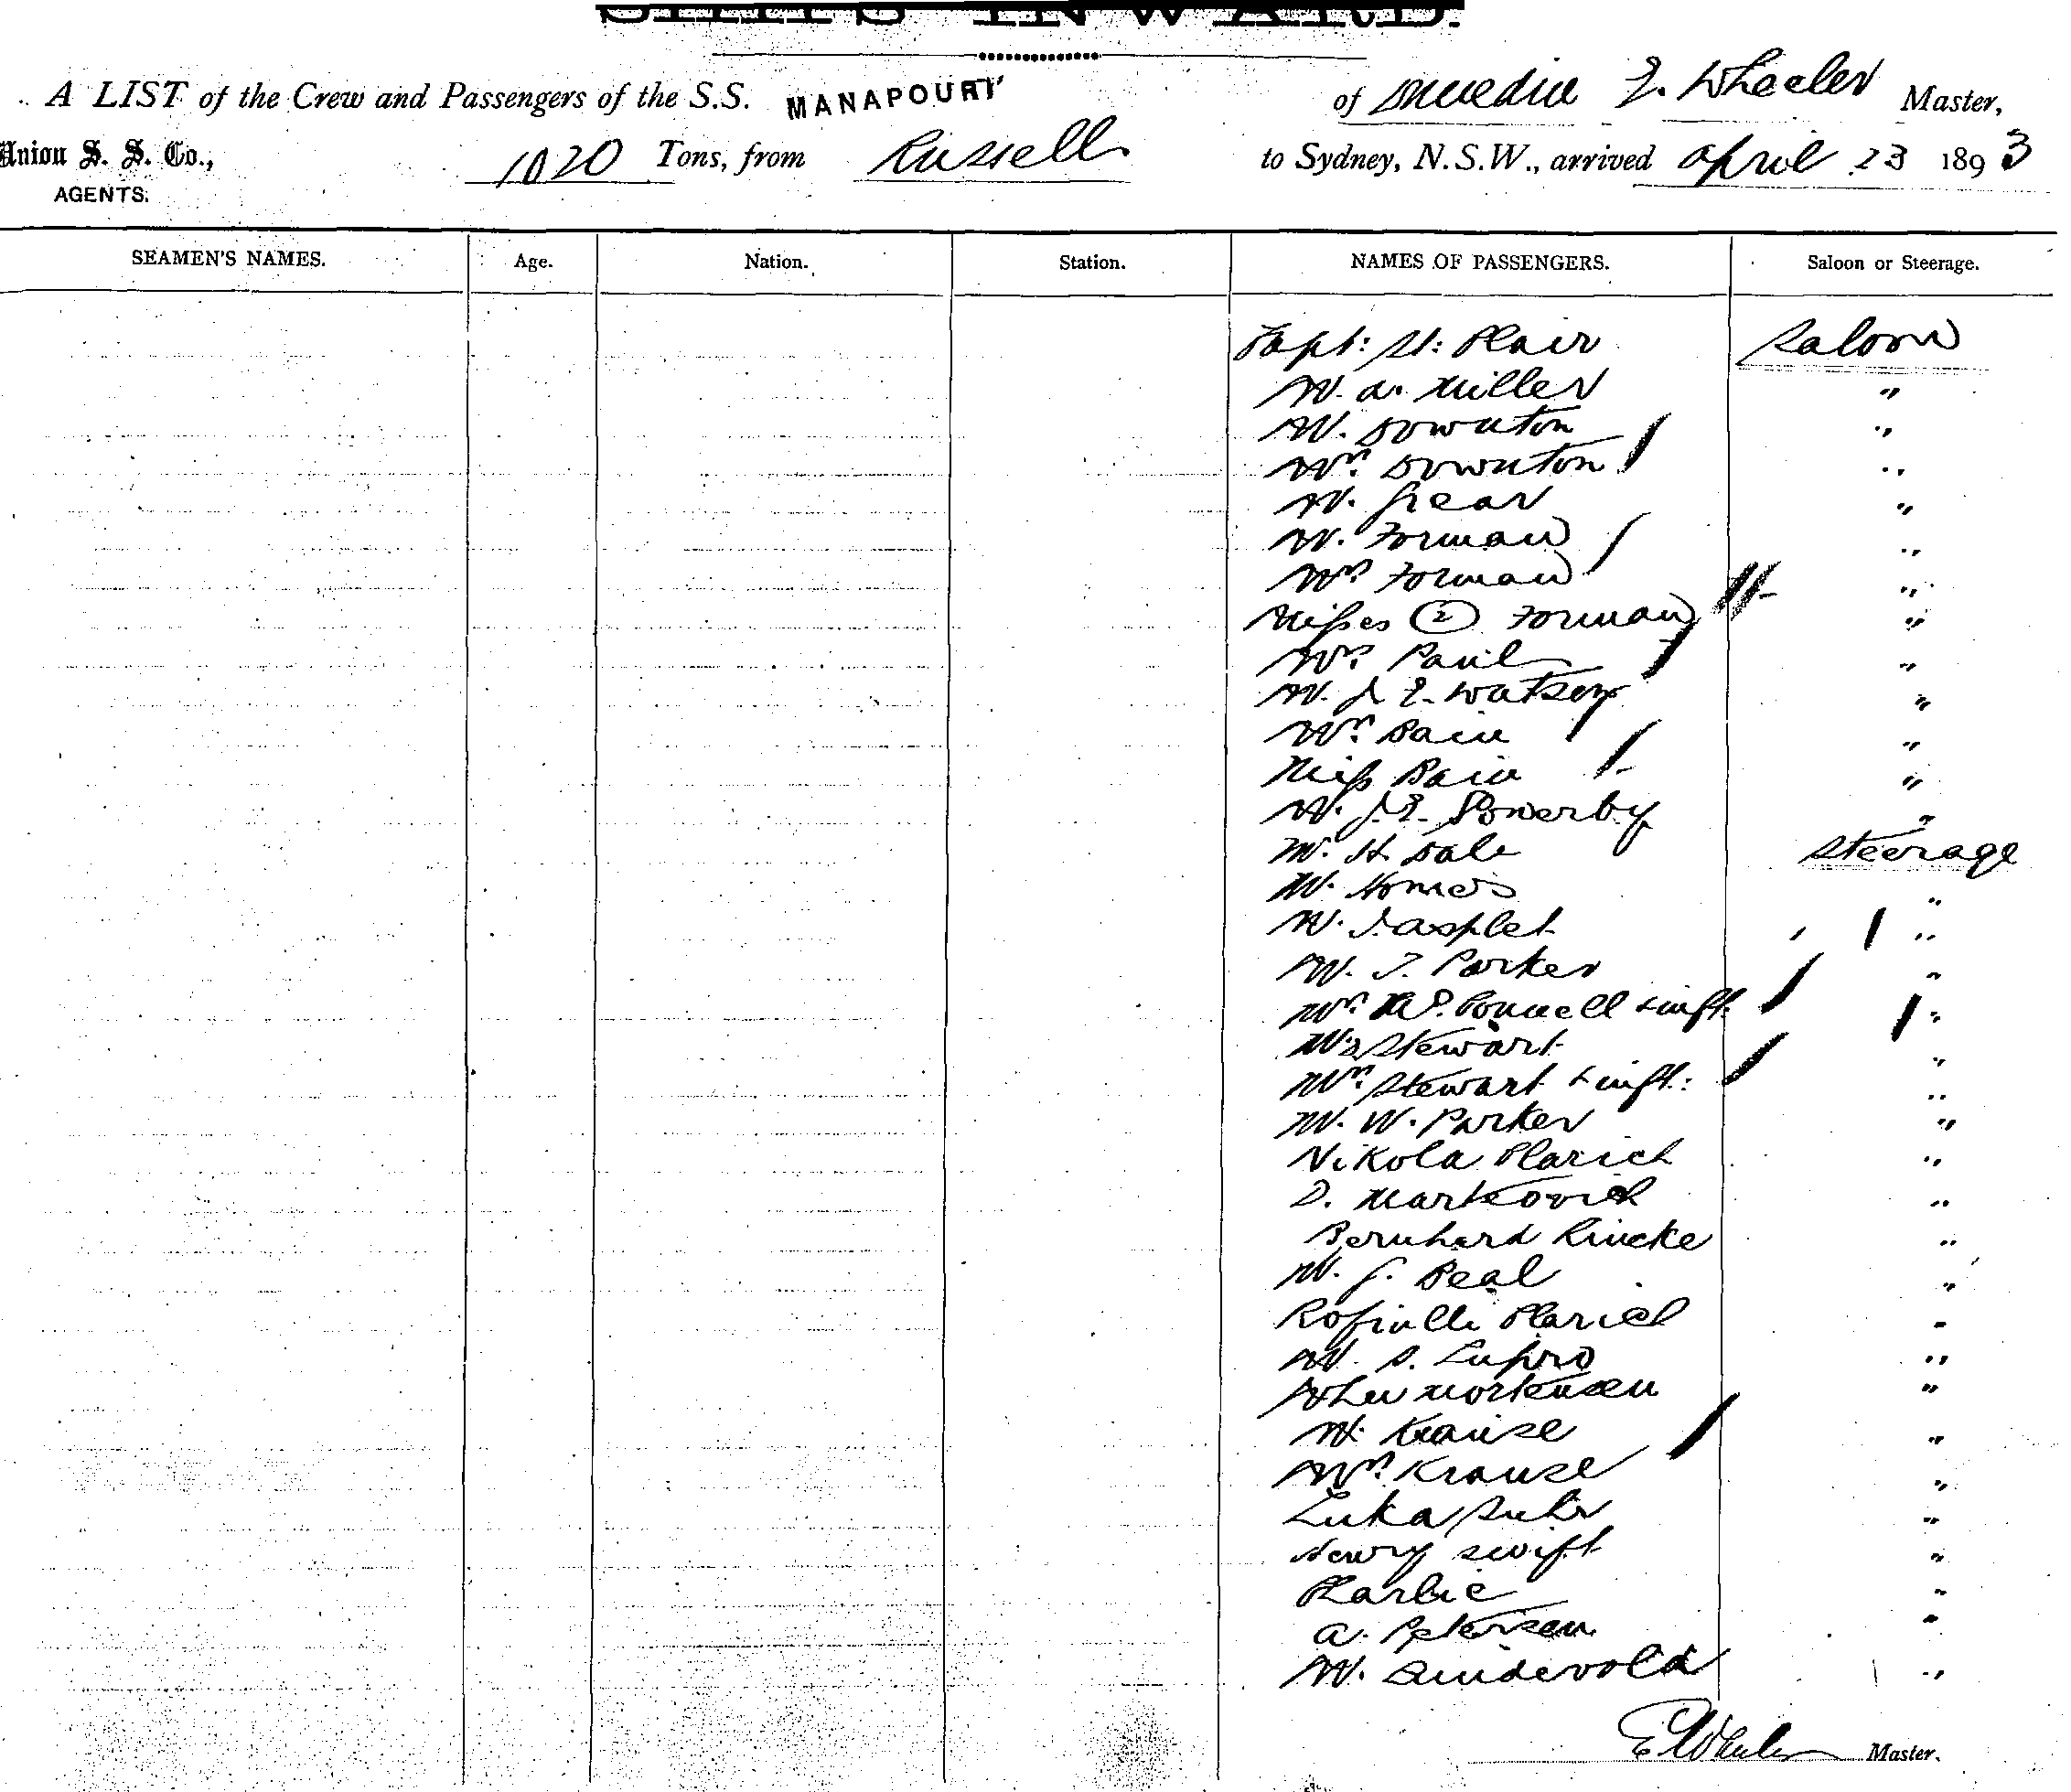 SHIPS INWARD.
A LIST of the Crew and Passengers of the S.S. MANAPOURI of Dunedin E. Wheeler Master,
Union S. S. Co., AGENTS. 1020 Tons, from Russell to Sydney, N.S.W., arrived April 23 1893
SEAMEN'S NAMES. Age. Nation. Station. NAMES OF PASSENGERS. Saloon or Steerage.
Capt: St: Clair Saloon
Mr. A. Miller "
Mr. Downton "
Mrs. Downton "
Mr. Grear "
Mr. Forman "
Mrs. Forman "
Misses (2) Forman "
Mrs. Paul "
Mr. J. E. Watson "
Mrs. Bain "
Miss Bain "
Mr. J. E. Sowerby "
Mr. H. Dale Steerage
Mr. Homes "
Mr. Tasplet "
Mr. T. Parker "
Mrs. McConnell & inft. "
Mr. Stewart "
Mrs. Stewart & inft: "
Mr. W. Parker "
Nikola Clarich "
D. Markovich "
Bernhard Rincke "
Mr. G. Beal "
Clarich "
Mr. S. "
John Mortensen "
Mr. Krause "
Mrs. Krause "
Luka "
Henry Swift "
Charlie "
A. Petersen "
Mr. Sundevold "
E Wheeler Master.